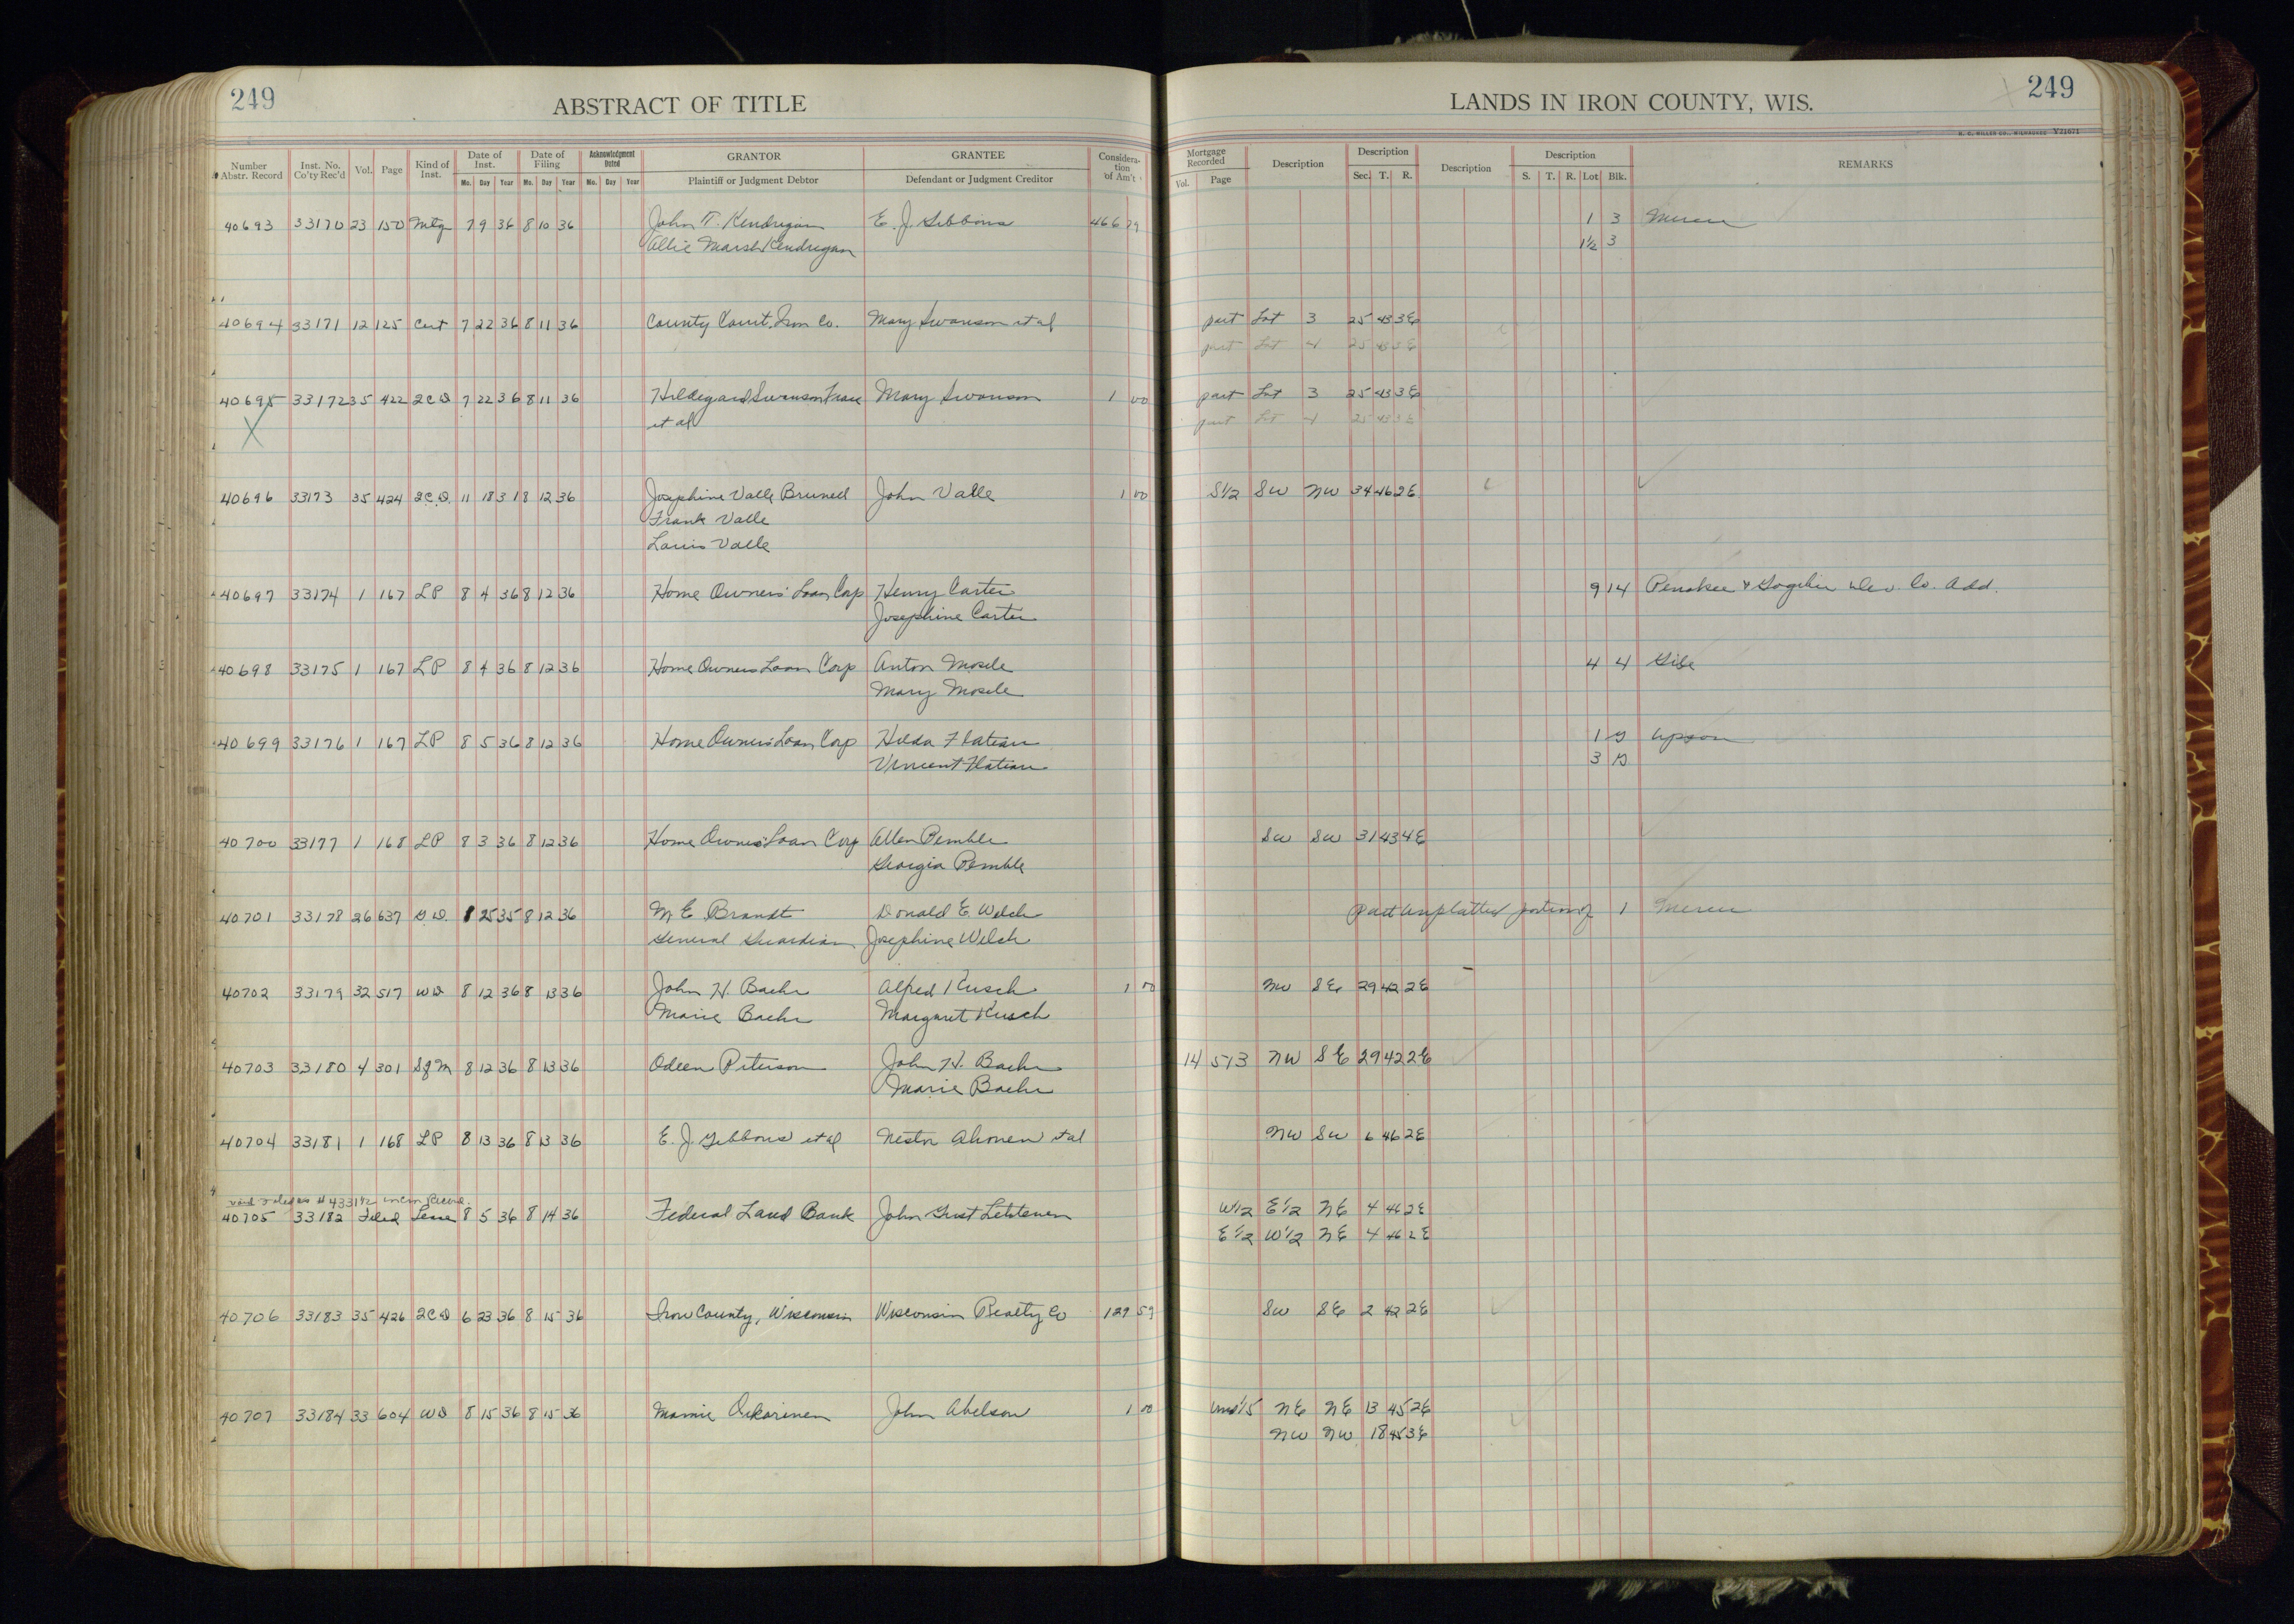 249 ABSTRACT OF TITLE LANDS IN IRON COUNTY, WIS. 249
H. C. MILLER CO., MILWAUKEE Y21671
Number Abstr. Record Inst. No. Co'ty Rec'd Vol. Page Kind of Inst. Date of Inst. Mo. Day Year Date of Filing Mo. Day Year Acknowledgment Dated Mo. Day Year GRANTOR Plaintiff or Judgment Debtor GRANTEE Defendant or Judgment Creditor Consideration of Am't Mortgage Recorded Vol. Page Description Description Sec. T. R. Description Description S. T. R. Lot Blk. REMARKS
40693 33170 23 150 Mtg 7 9 36 8 10 36 John T. Kendrigan E. J. Gibbons 466 79 1 3 Mercer
Allie Marsh Kendrigan 1½ 3
40694 33171 12 125 Cert 7 22 36 8 11 36 County Court, Iron Co. Mary Swanson et al part Lot 3 25 43 3E
part Lot 4 25 43 3E
40695 33172 35 422 2CD 7 22 36 8 11 36 Hildegard Swanson Mary Swanson 1 00 part Lot 3 25 43 3E
X et al part Lot 4 25 43 3E
40696 33173 35 424 2C.D. 11 18 31 8 12 36 Josephine Valle Brunell John Valle 1 00 S½ SW NW 34 46 2E
Frank Valle
Louis Valle
40697 33174 1 167 LP 8 4 36 8 12 36 Home Owners' Loan Corp Henry Carter 9 14 Penokee & Gogebic Dev. Co. Add.
Josephine Carter
40698 33175 1 167 LP 8 4 36 8 12 36 Home Owners Loan Corp Anton Mosele 4 4 Gile
Mary Mosele
40699 33176 1 167 LP 8 5 36 8 12 36 Home Owners' Loan Corp Hilda Flateau 1 Upson
Vincent Flateau 3
40700 33177 1 168 LP 8 3 36 8 12 36 Home Owners' Loan Corp Allen Pemble SW SW 31 43 4E
Georgia Pemble
40701 33178 26 637 G.D. 8 25 35 8 12 36 M E Brandt Donald E. Welch Part unplatted portion of 1 Mercer
General Guardian Josephine Welch
40702 33179 32 517 WD 8 12 36 8 13 36 John H. Baehr Alfred Kusch 1 00 NW SE 29 42 2E
Marie Baehr Margaret Kusch
40703 33180 4 301 SfM 8 12 36 8 13 36 Odeen Peterson John H. Baehr 14 513 NW SE 29 42 2E
Marie Baehr
40704 33181 1 168 LP 8 13 36 8 13 36 E. J. Gibbons et al Nestor Ahonen et al NW SW 6 46 2E
40705 33182 Filed Lease 8 5 36 8 14 36 Federal Land Bank John Gust W½ E½ NE 4 46 2E
E½ W½ NE 4 46 2E
40706 33183 35 426 2CD 6 23 36 8 15 36 Iron County, Wisconsin Wisconsin Realty Co 129 59 SW SE 2 42 2E
40707 33184 33 604 WD 8 15 36 8 15 36 Mamie Oskarinen John Abelson 1 00 und 1/5 NE NE 13 45 2E
NW NW 18 45 3E